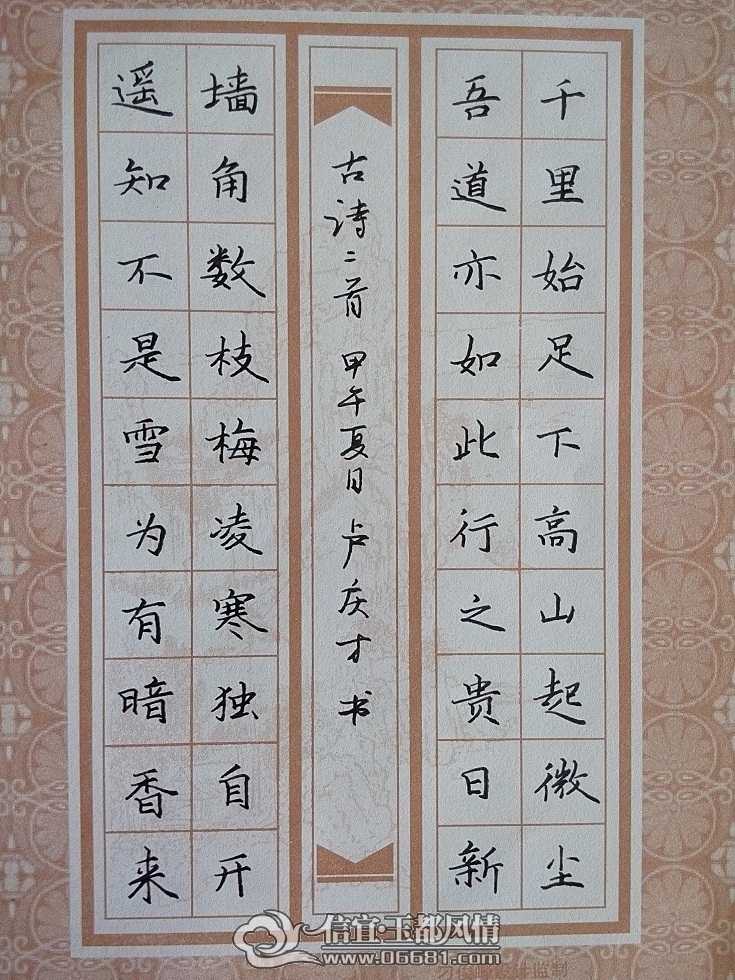 千里始足下高山起微尘
吾道亦如此行之贵日新
古诗二首 甲午夏日 卢庆才书
墙角数枝梅凌寒独自开
遥知不是雪为有暗香来
信宜·玉都风情
www.06681.com